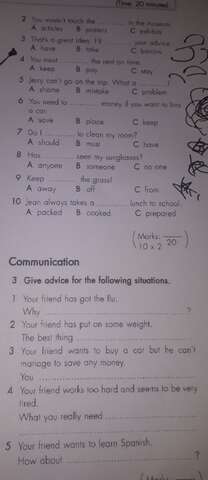 (Time: 20 minutes)
2 You mustn't touch the ............ in the museum.
A articles B posters C exhibits
3 That's a great idea. I'll ............ your advice.
A have B take C
4 You must ............ the rent on time.
A keep B pay C stay
5 Jerry can't go on the trip. What a ............!
A shame B mistake C problem
6 You need to ............ money if you want to buy
a car.
A save B place C keep
7 Do I ............ to clean my room?
A should B must C have
8 Has ............ seen my sunglasses?
A anyone B someone C no one
9 Keep ............ the grass!
A away B off C from
10 Jean always takes a ............ lunch to school.
A packed B cooked C prepared
(Marks: 20
10 x 2)
Communication
3 Give advice for the following situations.
1 Your friend has got the flu.
Why ............ ?
2 Your friend has put on some weight.
The best thing ............
3 Your friend wants to buy a car but he can't
manage to save any money.
You ............
4 Your friend works too hard and seems to be very
tired.
What you really need ............
5 Your friend wants to learn Spanish.
How about ............ ?
(Marks: